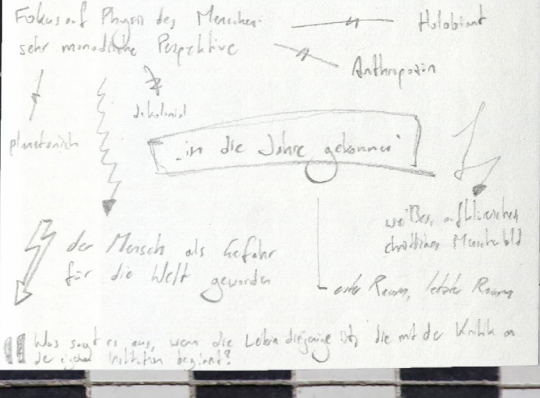 Fokus auf Physis des Menschen
sehr monadische Perspektive
Holobiont
Anthropozän
planetarisch
dekolonial
„in die Jahre gekommen“
weißes, aufklärerisches
christliches Menschenbild
der Mensch als Gefahr
für die Welt geworden
erster Raum, letzter Raum
Was sagt es aus, wenn die diejenige ist, die mit der Kritik an
der eigenen Institution beginnt?